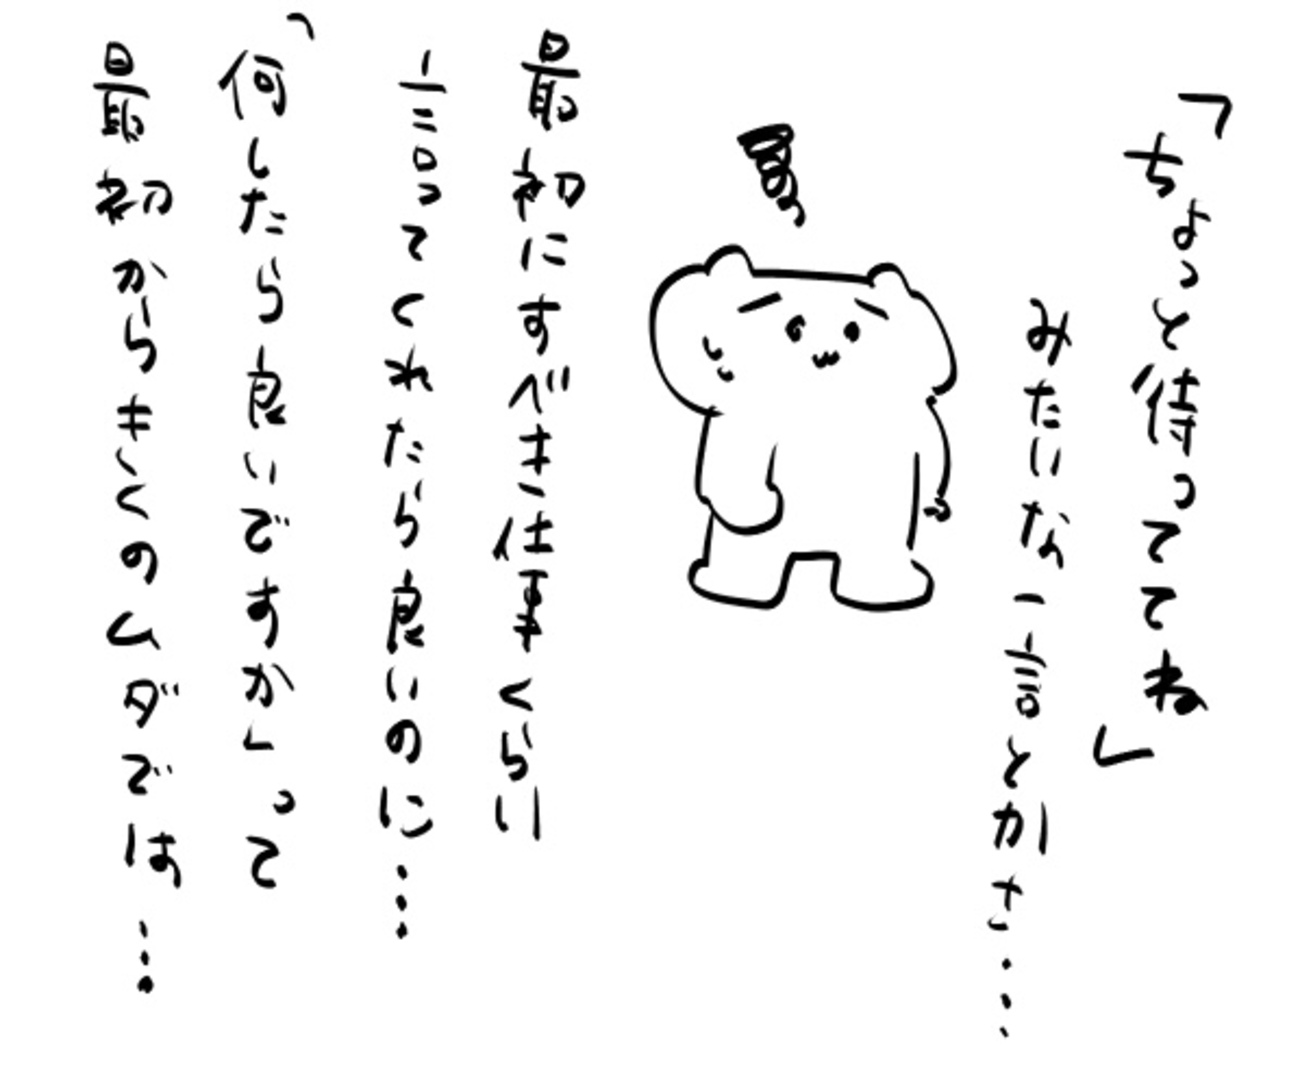 「ちょっと待っててね」
みたいな一言とかさ…
最初にすべき仕事くらい
言ってくれたら良いのに…
「何したら良いですか」って
最初からきくのムダでは…